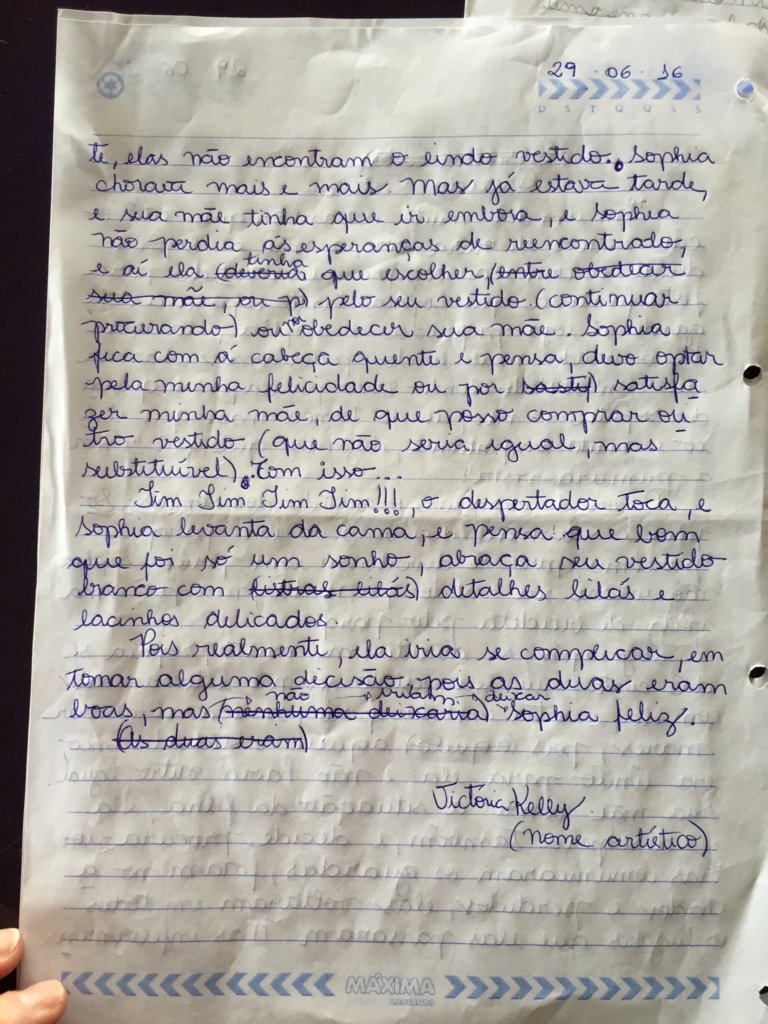 29 . 06 . 16
D S T Q Q S S
te, elas não encontram o lindo vestido. Sophia
chorava mais e mais. Mas já estava tarde,
e sua mãe tinha que ir embora, e Sophia
não perdia ás esperanças de reencontrado,
tinha
e aí ela (deveria) que escolher, (entre obedecer
sua mãe, ou p) pelo seu vestido (continuar
procurando) ou por obedecer sua mãe. Sophia
fica com á cabeça quente e pensa, devo optar
pela minha felicidade ou por satisfa
zer minha mãe, de que posso comprar ou
tro vestido (que não seria igual, mas
substituível). Com isso...
Tim Tim Tim Tim!!!, o despertador toca, e
Sophia levanta da cama, e pensa que bom
que foi só um sonho, abraça seu vestido
branco com (listras lilás) detalhes lilás e
lacinhos delicados.
Pois realmente, ela iria se complicar, em
tomar alguma decisão, pois as duas eram
não iriam deixar
boas, mas (nenhuma deixaria) Sophia feliz.
(As duas eram)
Victoria Kelly
(nome artístico)
MÁXIMA
CADERNOS